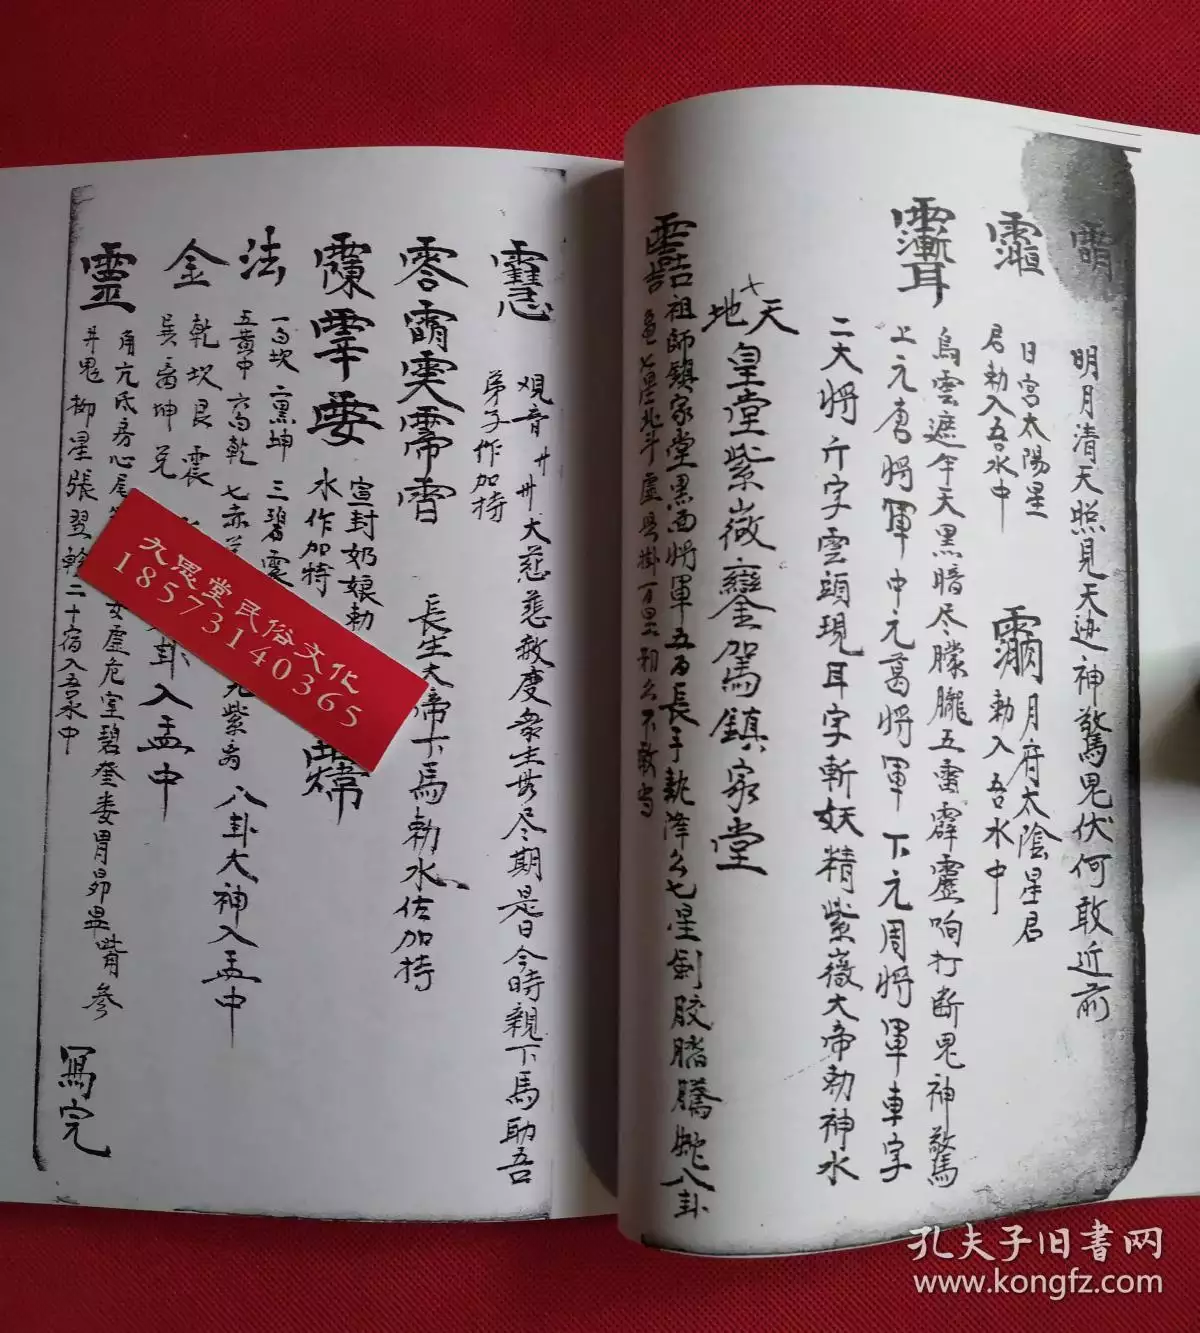 明月清天照見天𨑳神驚鬼伏何敢近前
日宮太陽星
君勅入吾水中
月府太陰星君
勅入吾水中
烏雲遮午天黑暗尽朦朧五雷霹靂响打断鬼神驚
上元唐將軍中元葛將軍下元周將軍車字
二大將斤字雲頭現耳字斬妖精紫薇大帝勅神水
天
地
皇堂紫薇鑾駕鎮家堂
祖師鎮家堂黑面將軍五百長手執降么七星劍胶腊騰蛇八卦
龟七星北斗虚
不敢当
觀音卄卅大慈悲救度衆生无尽期是日今時親下馬助吾
弟子作加持
零
長生大帝下馬勅水佐加持
宣封奶娘勅
水作加特
法
一白坎二黑坤三碧震
五黄中六白乾七赤
九紫离八卦大神入盂中
金
乾坎艮震
巽离坤兑
卦入盂中
靈
角亢氐房心尾
女虚危室碧奎娄胃昴畢觜參
井鬼柳星張翌軫二十宿入吾水中
寫完
九思堂民俗文化
18573140365
孔夫子旧書网
www.kongfz.com